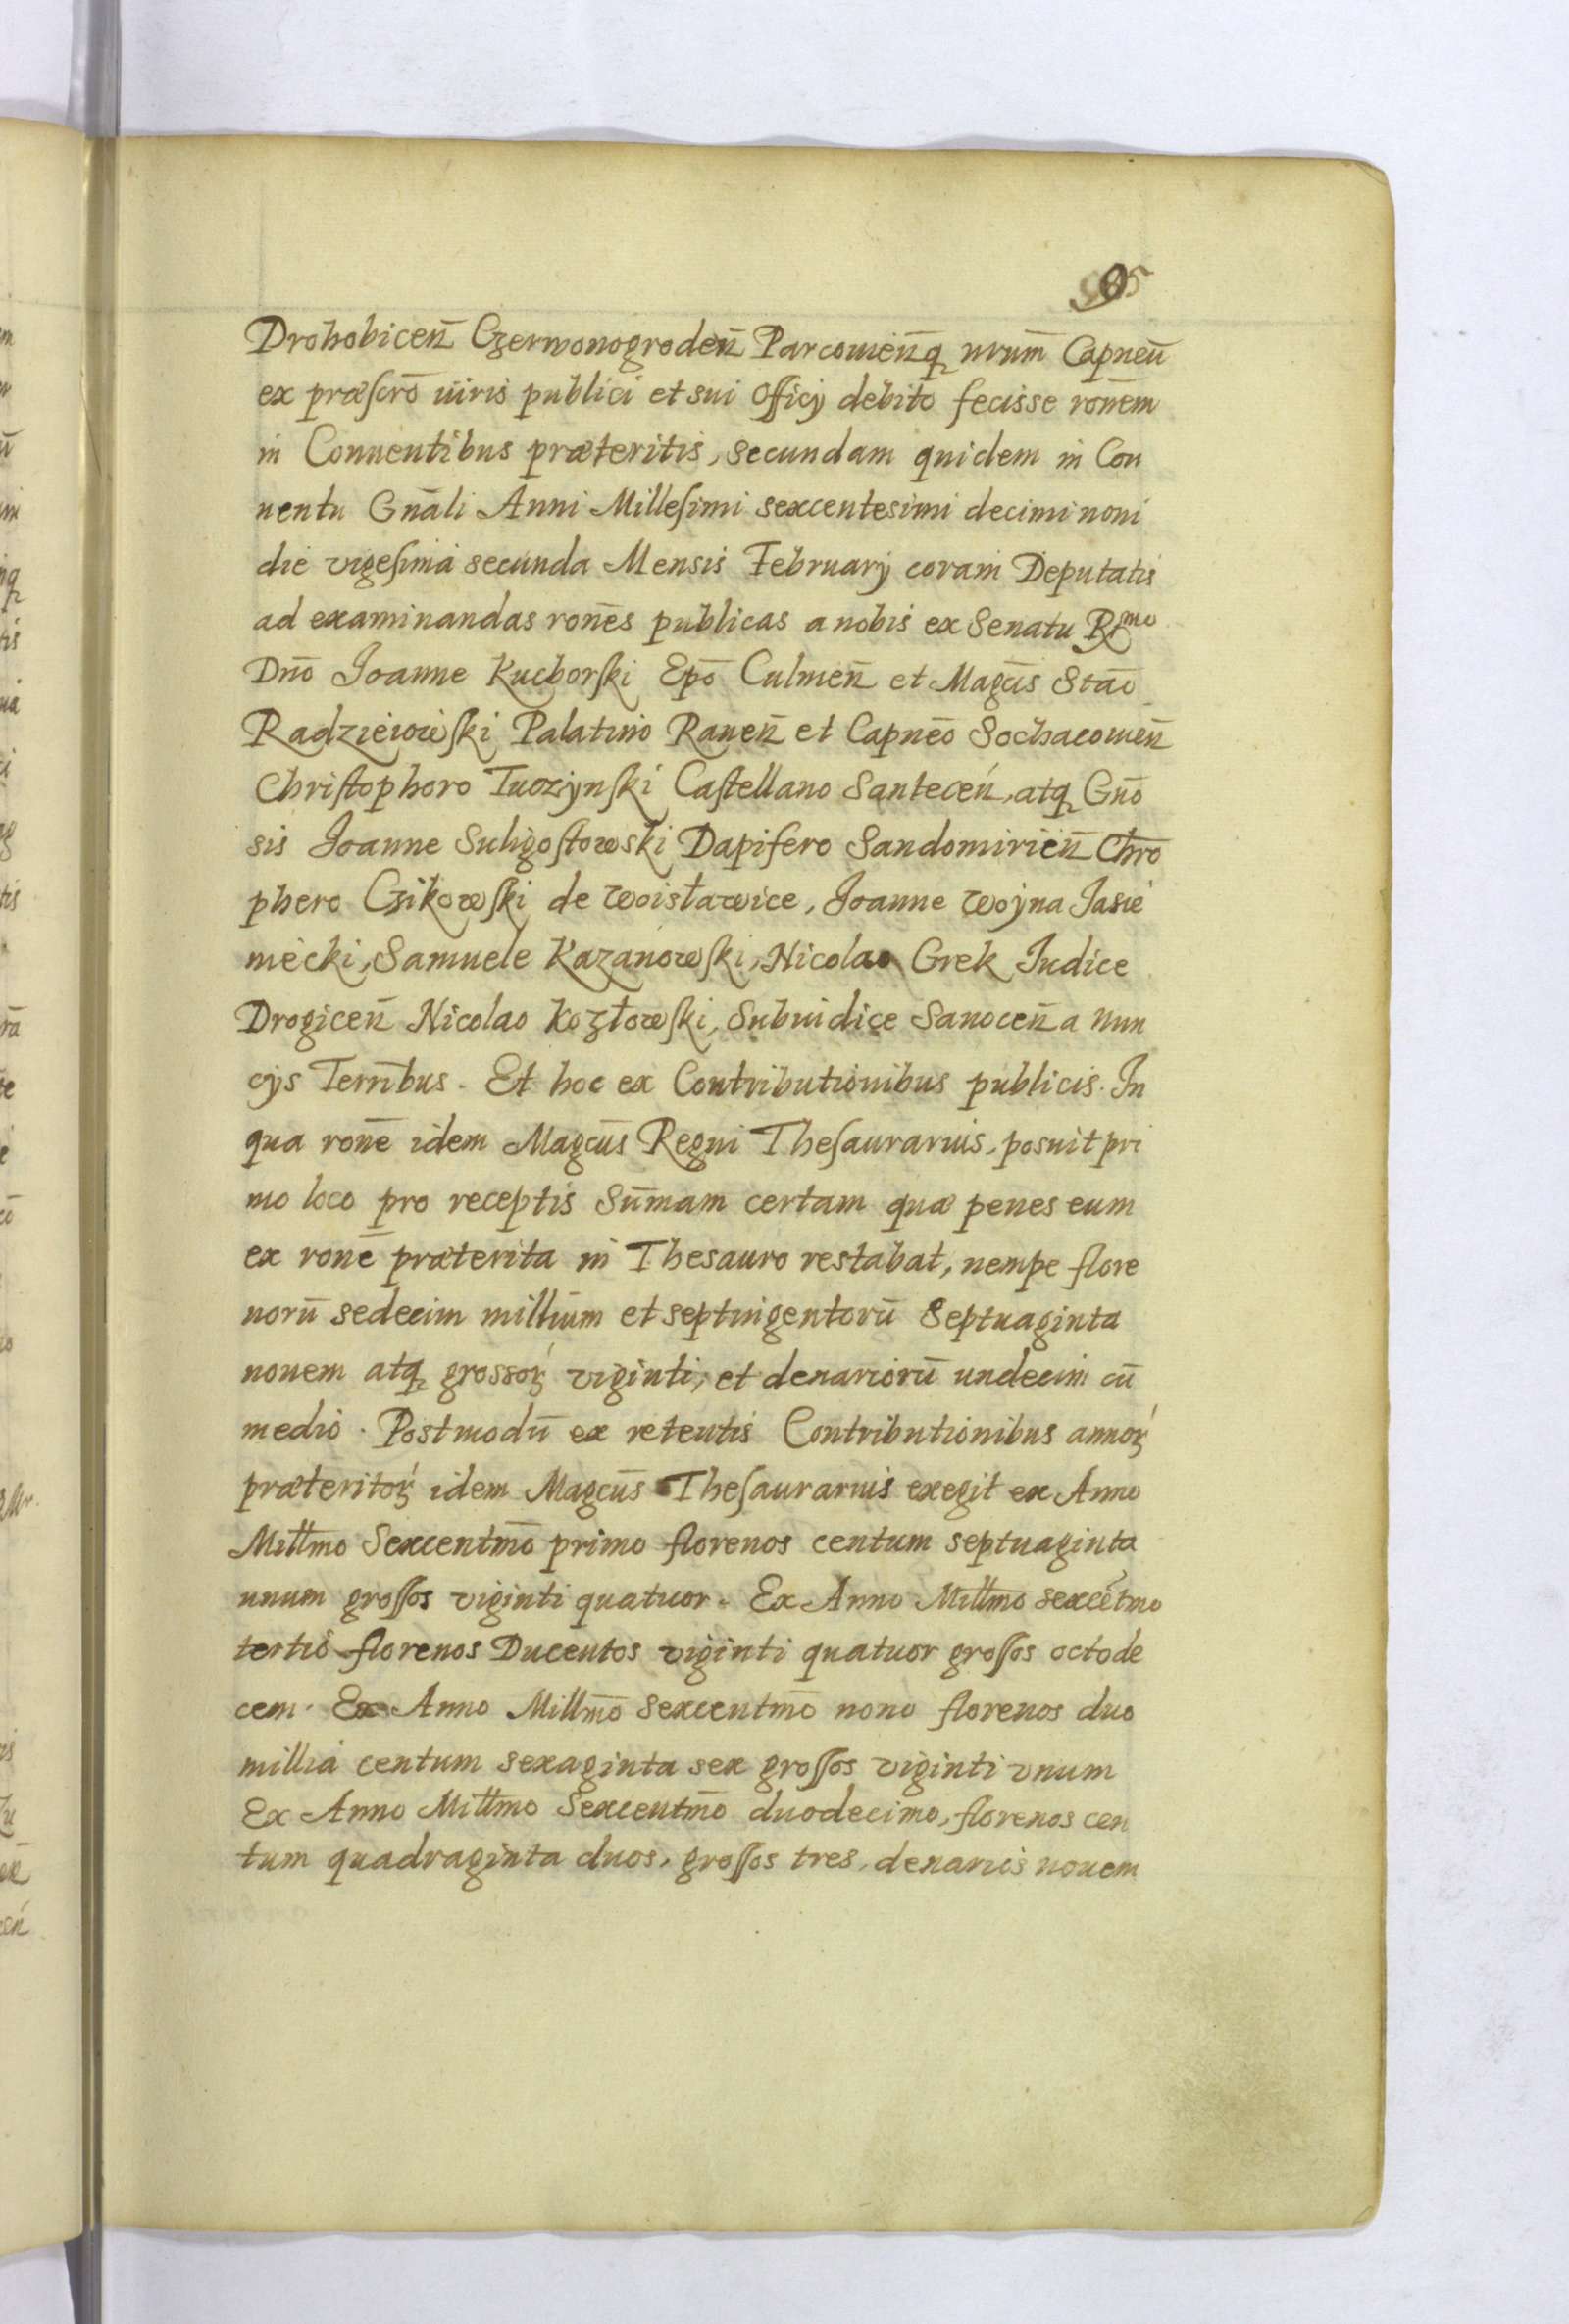 95
Drohobiceñ Czerwonogrodeñ Parcouieñq nrum̄ Capneū
ex præscrō iuris publici et sui Officij debito fecisse ronēm
in Conuentibus præteritis, secundam quidem in Con
uentu Gnāli Anni Millesimi sexcentesimi decimi noni
die vigesima secunda Mensis February coram Deputatis
ad examinandas ronēs publicas a nobis ex Senatu Rmo
Dnō Joanne Kuchorski Epō Culmeñ et Magcis Stāo
Radzieiowski Palatino Raueñ et Capneō Sochacouieñ
Christophoro Tuczynski Castellano Santeceñ, atq Gnō
sis Joanne Suligostowski Dapifero Sandomirieñ Chrō
phero Czikowski de Woisławice, Joanne Woyna Jasie
niecki, Samuele Kazanowski, Nicolao Grek Iudice
Drogiceñ Nicolao Kozłowski, Subiudice Sanoceñ a Nun
cijs Terrībus. Et hoc ex Contributionibus publicis. In
qua ronē idem Magcūs Regni Thesaurarius, posuit pri
mo loco pro receptis Sūmam certam quæ penes eum
ex ronē præterita in Thesauro restabat, nempe flore
norū sedecim millium et septingentorū Septuaginta
nouem atq grossoꝝ viginti, et denariorū undecim cū
medio. Postmodū ex retentis Contributionibus annoꝝ
præteritoꝝ idem Magcūs Thesaurarius exegit ex Anno
Millmo Sexcentmō primo florenos centum septuaginta
unum grossos viginti quatuor. Ex Anno Millmo sexcētmo
tertio florenos Ducentos viginti quatuor grossos octode
cem. Ex Anno Millmō Sexcentmō nono florenos duo
millia centum sexaginta sex grossos viginti vnum
Ex Anno Millmo Sexcentmō duodecimo, florenos cen
tum quadraginta duos, grossos tres, denarios nouem